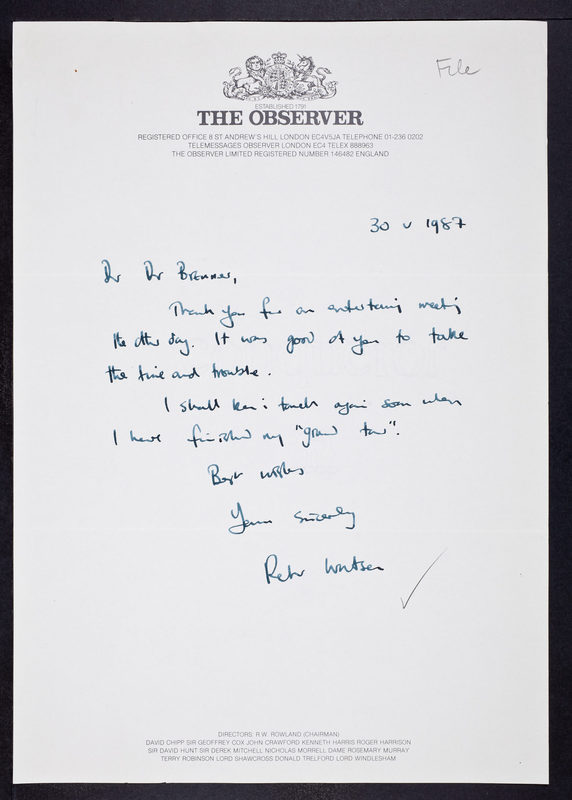 File
ESTABLISHED 1791
THE OBSERVER
REGISTERED OFFICE 8 ST ANDREW'S HILL LONDON EC4V5JA TELEPHONE 01-236 0202
TELEMESSAGES OBSERVER LONDON EC4 TELEX 888963
THE OBSERVER LIMITED REGISTERED NUMBER 146482 ENGLAND
30 v 1987
Dr Brenner,
Thank you for an entertaining meeting
the other day. It was good of you to take
the time and trouble.
I shall be in touch again soon when
I have finished my "grand tour".
Best wishes
Yours sincerely
Peter Watson
DIRECTORS: R.W. ROWLAND (CHAIRMAN)
DAVID CHIPP SIR GEOFFREY COX JOHN CRAWFORD KENNETH HARRIS ROGER HARRISON
SIR DAVID HUNT SIR DEREK MITCHELL NICHOLAS MORRELL DAME ROSEMARY MURRAY
TERRY ROBINSON LORD SHAWCROSS DONALD TRELFORD LORD WINDLESHAM